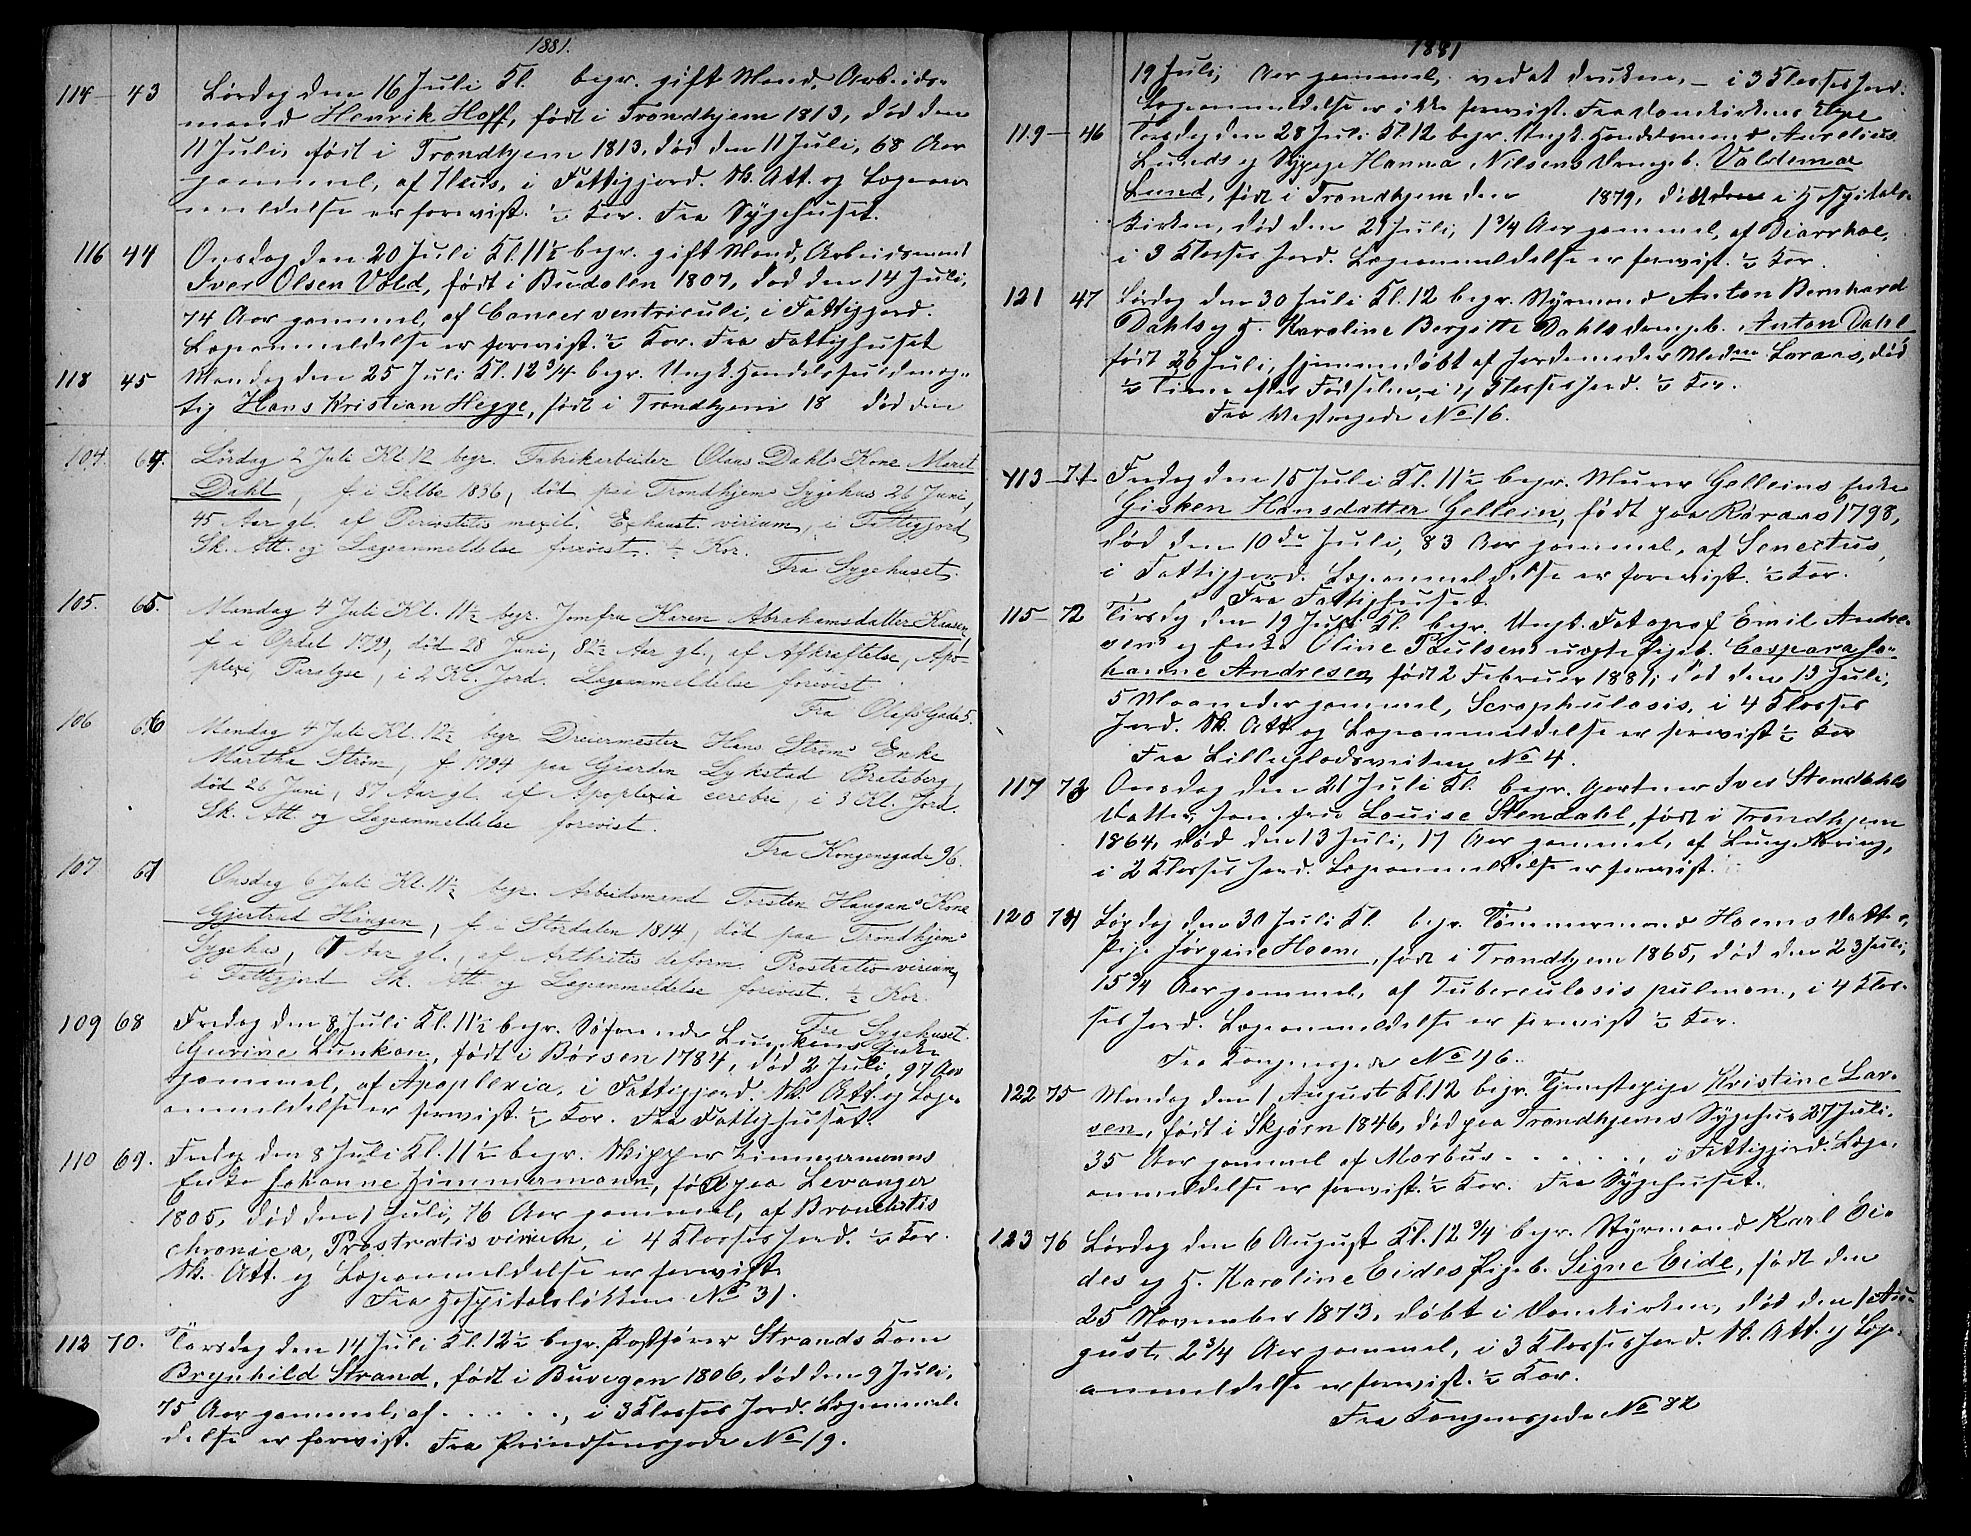 1881.
114 - 43 Lørdag den 16 Juli Kl. begr. gift Mand, Arbeids-
mand Henrik Hoff, født i Trondhjem 1813, død den
11 Juli, født i Trondhjem 1813, død den 11 Juli, 68 Aar
gammel, af Ileus, i Fattigjord. Sk. Att. og Lægean-
meldelse er forevist. ½ Kor. Fra Sygehuset.
116 44 Onsdag den 20 Juli Kl. 11½ begr. gift Mand, Arbeidsmand
Iver Olsen Vold, født i Budalen 1807, død den 14 Juli,
74 Aar gammel, af Cancer ventriculi, i Fattigjord.
Lægeanmeldelse er forevist. ½ Kor. Fra Fattighuset
118 45 Mandag den 25 Juli Kl. 12 3/4 begr. Ungk. Handelsfuldmæg-
tig Hans Kristian Hegge, født i Trondhjem 18 død den
104. 64. Lördag 2 Juli Kl. 12 begr. Fabrikarbeider Olaus Dahls Kone Meret
Dahl, f. i Selbo 1836, död paa Trondhjems Sygehus 26 Juni,
45 Aar gl. af Exhaust. virium, i Fattigjord
Sk. Att. og Lægeanmeldelse forevist. ½ Kor.
Fra Sygehuset.
105. 65. Mandag 4 Juli Kl. 11½ begr. Jomfru Karen Abrahamsdatter
f. i Opdal 1799, död 28 Juni, 82½ Aar gl., af Afkræftelse, Apo-
plexi, Paralyse, i 2 Kl. Jord. Lægeanmeldelse forevist
Fra Olafs Gade 5.
106 66 Mandag 4 Juli Kl. 12½ begr. Dreiermester Hans Strøms Enke
Martha Strøm, f. 1794 paa Gaarden Lykstad Bratsberg,
død 26 Juni, 87 Aar gl. af Apoplexia cerebri, i 3 Kl. Jord.
Sk. Att og Lægeanmeldelse forevist.
Fra Kongensgade 96.
107 67 Onsdag 6 Juli Kl. 11½ begr. Arbeidsmand Torsten Haugans Kone
Gjertrud Haugan, f. i Stordalen 1814, død paa Trondhjems
Sygehus, 67 Aar gl., af Arthritis deform. Prostratio virium,
i Fattigjord Sk. Att og Lægeanmeldelse forevist. ½ Kor.
Fra Sygehuset.
109 68 Fredag den 8 Juli Kl. 11½ begr. Søfarende Enke
Gurine Lunkan, født i Børsen 1784, død 2 Juli, 97 Aar
gammel, af Apoplexia, i Fattigjord. Sk. Att. og Læge-
anmeldelse er forevist. ½ Kor. Fra Fattighuset.
110 69. Fredag den 8 Juli Kl. 11½ begr. Skipper Zimmermanns
Enke Johanne Zimmermann, født paa Levanger
1805, død den 1 Juli, 76 Aar gammel, af Bronchitis
chronica, Prostratis virium, i 4 Klasses Jord. ½ Kor.
Sk. Att. og Lægeanmeldelse er forevist
Fra Hospitalsløkken No 31.
112 70. Torsdag den 14 Juli Kl. 12½ begr. Postfører Strands Kone
Brynhild Strand, født i Buvegen 1806, død den 9 Juli,
75 Aar gammel, af . . . . ., i 3 Klasses Jord. Lægeanmel-
delse er forevist. Fra Prindsensgade No 19.
1881
19 Juli, Aar gammel, ved at drukne, - i 3 Klasses Jord.
Lægeanmeldelse er ikke forevist. Fra Domkirkens
119 - 46 Torsdag den 28 Juli Kl. 12 begr. Ungk. Handelsmand Aurelius
Lunds og Sypige Hanna Nilsens Drengeb. Valdemar
Lund, født i Trondhjem den 1879, døbt i Hospitals-
kirken, død den 21 Juli, 1 3/4 Aar gammel, af Diarrhoe,
i 3 Klasses Jord. Lægeanmeldelse er forevist. ½ Kor.
121 47 Lørdag den 30 Juli Kl. 12 begr. Styrmand Anton Bernhard
Dahls og H. Karoline Bergitte Dahls drengeb. Anton Dahl
født 26 Juli, hjemmedøbt af Jordemoder Mad. Loraas, død
½ Time efter Fødselen, i 4 Klasses Jord. ½ Kor.
Fra Vestregade No 16.
113 - 71 Fredag den 15 Juli Kl. 11½ begr. Murer Gelleins Enke
Gisken Hansdatter Gellein, født paa Røraas 1798,
død den 10de Juli, 83 Aar gammel, af Senectus,
i Fattigjord. Lægeanmeldelse er forevist. ½ Kor.
Fra Fattighuset
115 - 72 Tirsdag den 19 Juli Kl. begr. Ungk. Fotograf Emil Andre-
sens og Enke Oline Poulsens uægte Pigeb. Caspara Jo-
hanne Andresen, født 2 Februar 1881, død den 13 Juli,
5 Maaneder gammel, Scrophulosis, i 4 Klasses
Jord. Sk. Att og Lægeanmeldelse er forevist ½ Kor
Fra Lillegladsveiten No 4.
117 73 Onsdag den 21 Juli Kl. begr. Gartner Iver Stendahls
datter, Jomfru Louise Stendahl, født i Trondhjem
1864, død den 13 Juli, 17 Aar gammel, af Lungetæring,
i 2 Klasses Jord. Lægeanmeldelse er forevist.
120 74 Lørdag den 30 Juli Kl. begr. Tømmermand Hoems datter,
Pige Jørgine Hoem, født i Trondhjem 1865, død den 23 Juli,
15 3/4 Aar gammel, af Tuberculosis pulmon., i 4 Klas-
ses Jord. Lægeanmeldelse er forevist ½ Kor.
Fra Kongensgade No 96.
122 75 Mandag den 1 August Kl. 12 begr. Tjenestepige Kristine Lar-
sen, født i Skjørn 1846, død paa Trondhjems Sygehus 27 Juli,
35 Aar gammel af Morbus . . . . ., i Fattigjord. Læge-
anmeldelse er forevist. ½ Kor. Fra Sygehuset.
123 76 Lørdag den 6 August Kl. 12 3/4 begr. Styrmand Karl Ei-
des og H. Karoline Eides Pigeb. Signe Eide, født den
25 November 1873, døbt i Domkirken, død den 1 Au-
gust, 2 3/4 Aar gammel, i 3 Klasses Jord. Sk. Att. og Læge-
anmeldelse er forevist. ½ Kor.
Fra Kongensgade No 82